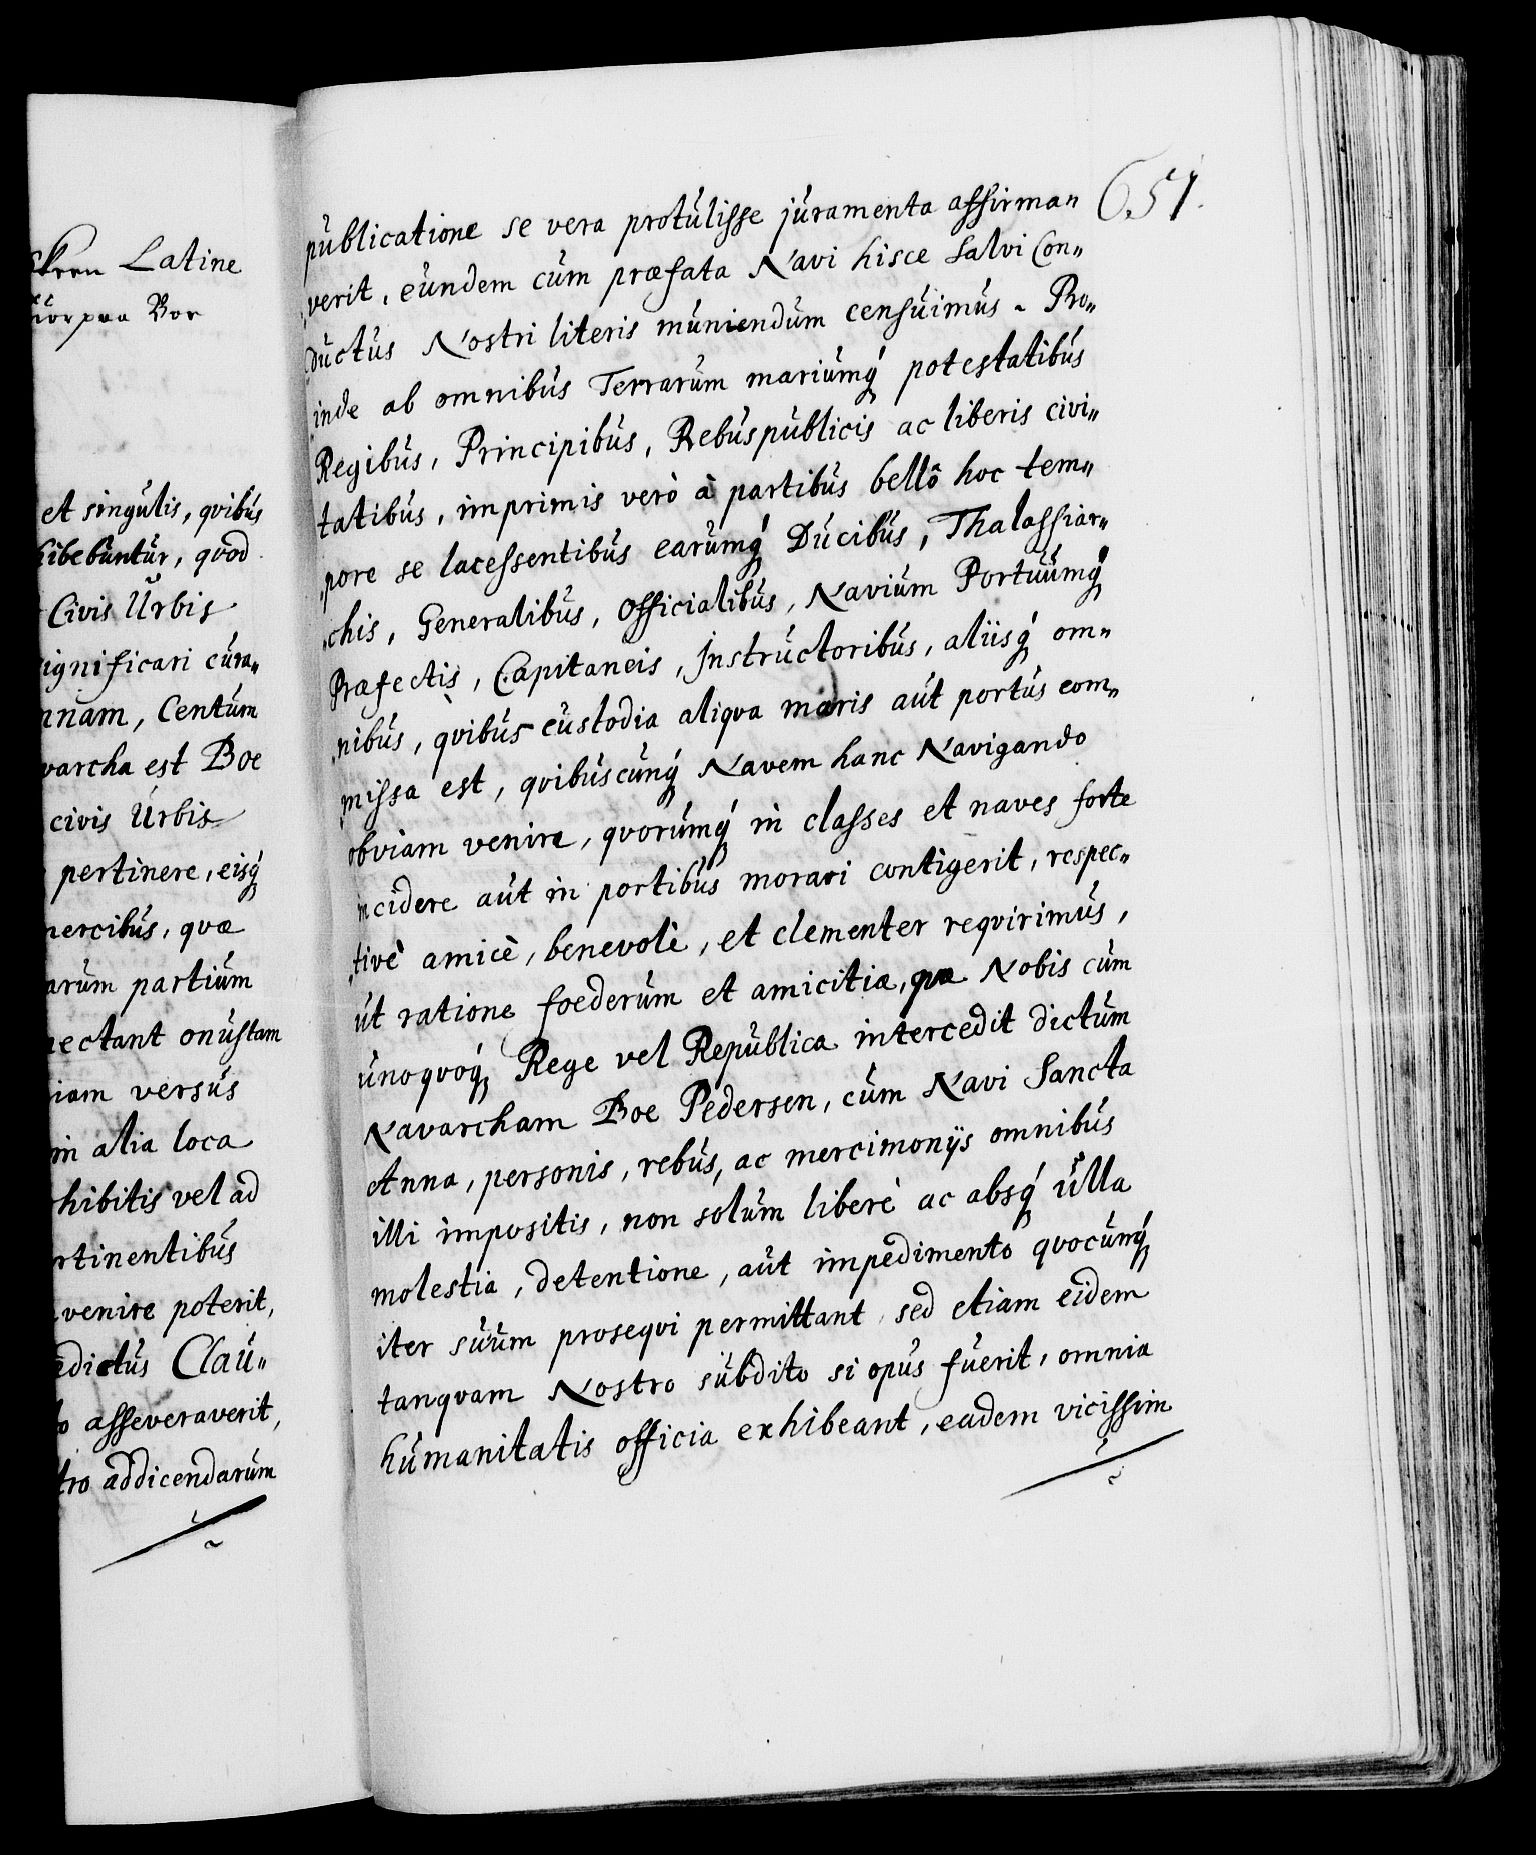 Latine
et singulis, qvibus
hibebuntur, qvod
Civis Urbis
significari cura„
nnam, Centum
varcha est Boe
civis Urbis
pertinere, eisq́
mercibus, qvæ
arum partium
nectant onustam
niam versus
in alia loca
hibitis vel ad
rtinentibus
venire poterit,
edictus Clau„
to asseveraverit,
tro addicendarum
651.
publicatione se vera protulisse juramenta affirma„
„verit, eundem cum præfata Navi hisce Salvi Con„
„ductus Nostri literis muniendum censuimus. Pro„
„inde ab omnibus Terrarum mariumq́ potestatibus
Regibus, Principibus, Rebuspublicis ac liberis civi„
tatibus, imprimis verò à partibus bellô hoc tem„
„pore se lacessentibus earumq́ Ducibus, Thalassiar„
„chis, Generalibus, Officialibus, Navium Portuumq́
Præfectis, Capitaneis, Instructoribus, aliisq́ om„
„nibus, qvibus custodia aliqva maris aut portus com„
„missa est, qvibuscunq́ Navem hanc Navigando
obviam venire, qvorumq́ in classes et naves forte
incidere aut in portibus morari contigerit, respec„
„tivè amicè, benevolè, et clementer reqvirimus,
ut ratione foederum et amicitiæ, qvæ Nobis cum
unoqvoq́ Rege vel Republica intercedit dictum
Navarcham Boe Pedersen, cum Navi Sancta
Anna, personis, rebus, ac mercimonijs omnibus
illi impositis, non solum liberè ac absq́ ulla
molestia, detentione, aut impedimento qvocunq́
iter suum proseqvi permittant, sed etiam eidem
tanqvam Nostro subdito si opus fuerit, omnia
humanitatis officia exhibeant, eadem vicissim